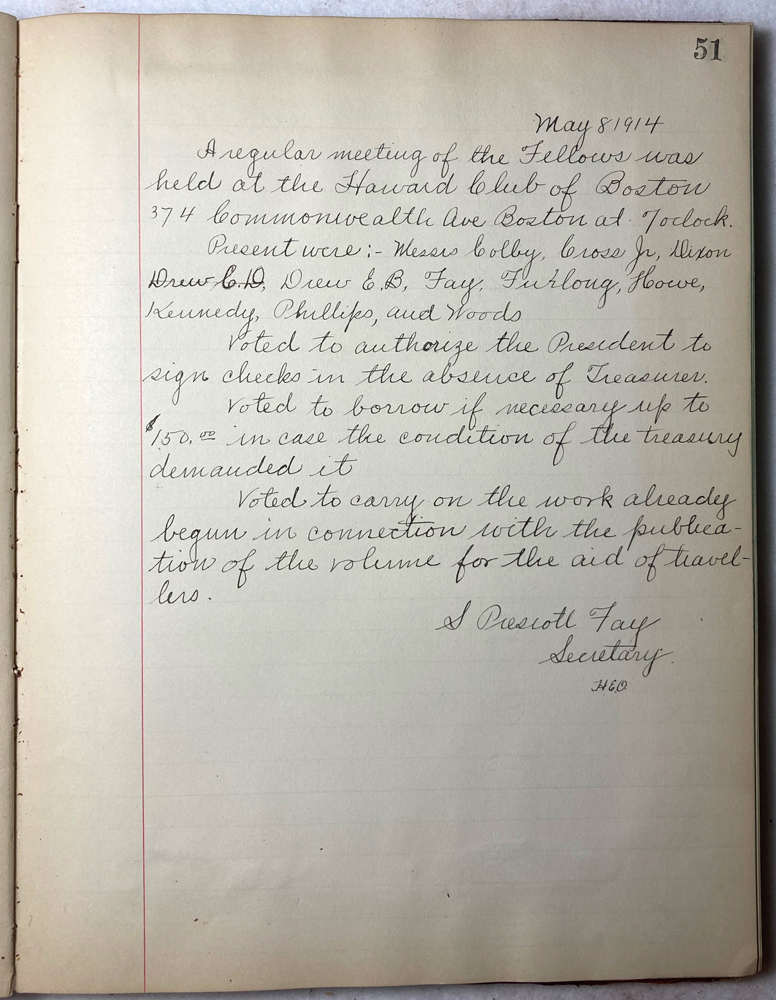 51
May 8 1914
A regular meeting of the Fellows was
held at the Harvard Club of Boston
374 Commonwealth Ave Boston at 7 oclock.
Present were:- Messrs Colby, Cross Jr, Dixon
Drew C.D, Drew E.B, Fay, Furlong, Howe,
Kennedy, Phillips, and Woods
Voted to authorize the President to
sign checks in the absence of Treasurer.
Voted to borrow if necessary up to
$150.00 in case the condition of the treasury
demanded it
Voted to carry on the work already
begun in connection with the publica-
tion of the volume for the aid of travel-
lers.
S Prescott Fay
Secretary.
HEO